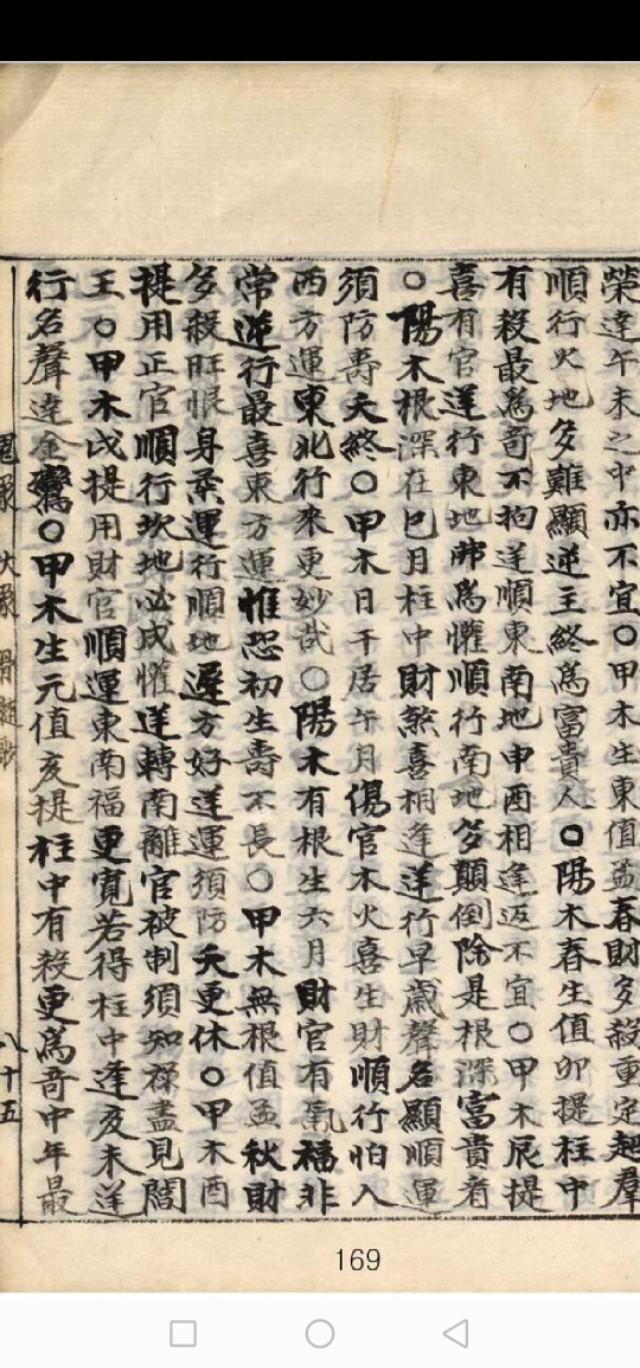 榮達午未之中亦不宜○甲木生東值孟春財多殺重定越羣
順行火地多難顯逆主終爲富貴人○陽木春生值卯提柱中
有殺最爲奇不拘逆順東南地申酉相逢返不宜○甲木辰提
喜有官逆行東地的爲懽順行南地多顛倒除是根深富貴者
○陽木根深在巳月柱中財煞喜相逢逆行早歲聲名顯順運
須防壽夭終○甲木日干居午月傷官木火喜生財順行怕入
西方運東北行來更妙哉○陽木有根生六月財官有氣福非
常逆行最喜東方運惟恐初生壽不長○甲木無根值孟秋財
多殺旺恨身柔運行順地遲方好逆運須防夭更休○甲木酉
提用正官順行坎地必成懽逆轉南離官被制須知祿盡見閻
王○甲木戌提用財官順運東南福更寬若得柱中逢亥未逆
行名聲達金鸞○甲木生元值亥提柱中有殺更爲奇中年最
骨髓歌 八十五
169